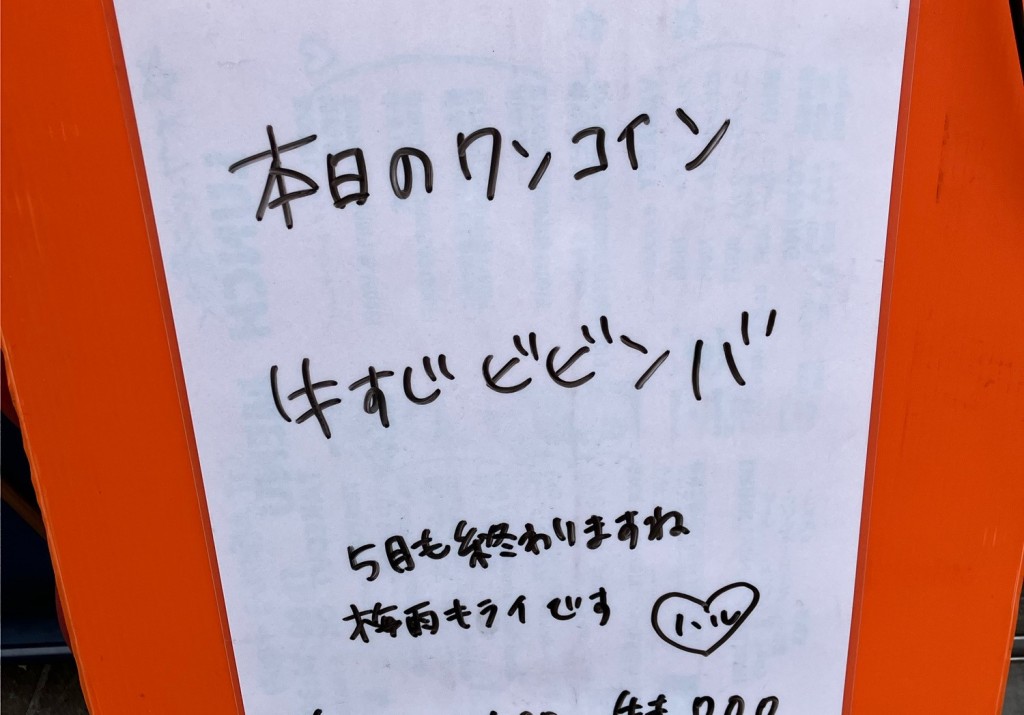 本日のワンコイン
牛すじビビンバ
5月も終わりますね
梅雨キライです
ハル